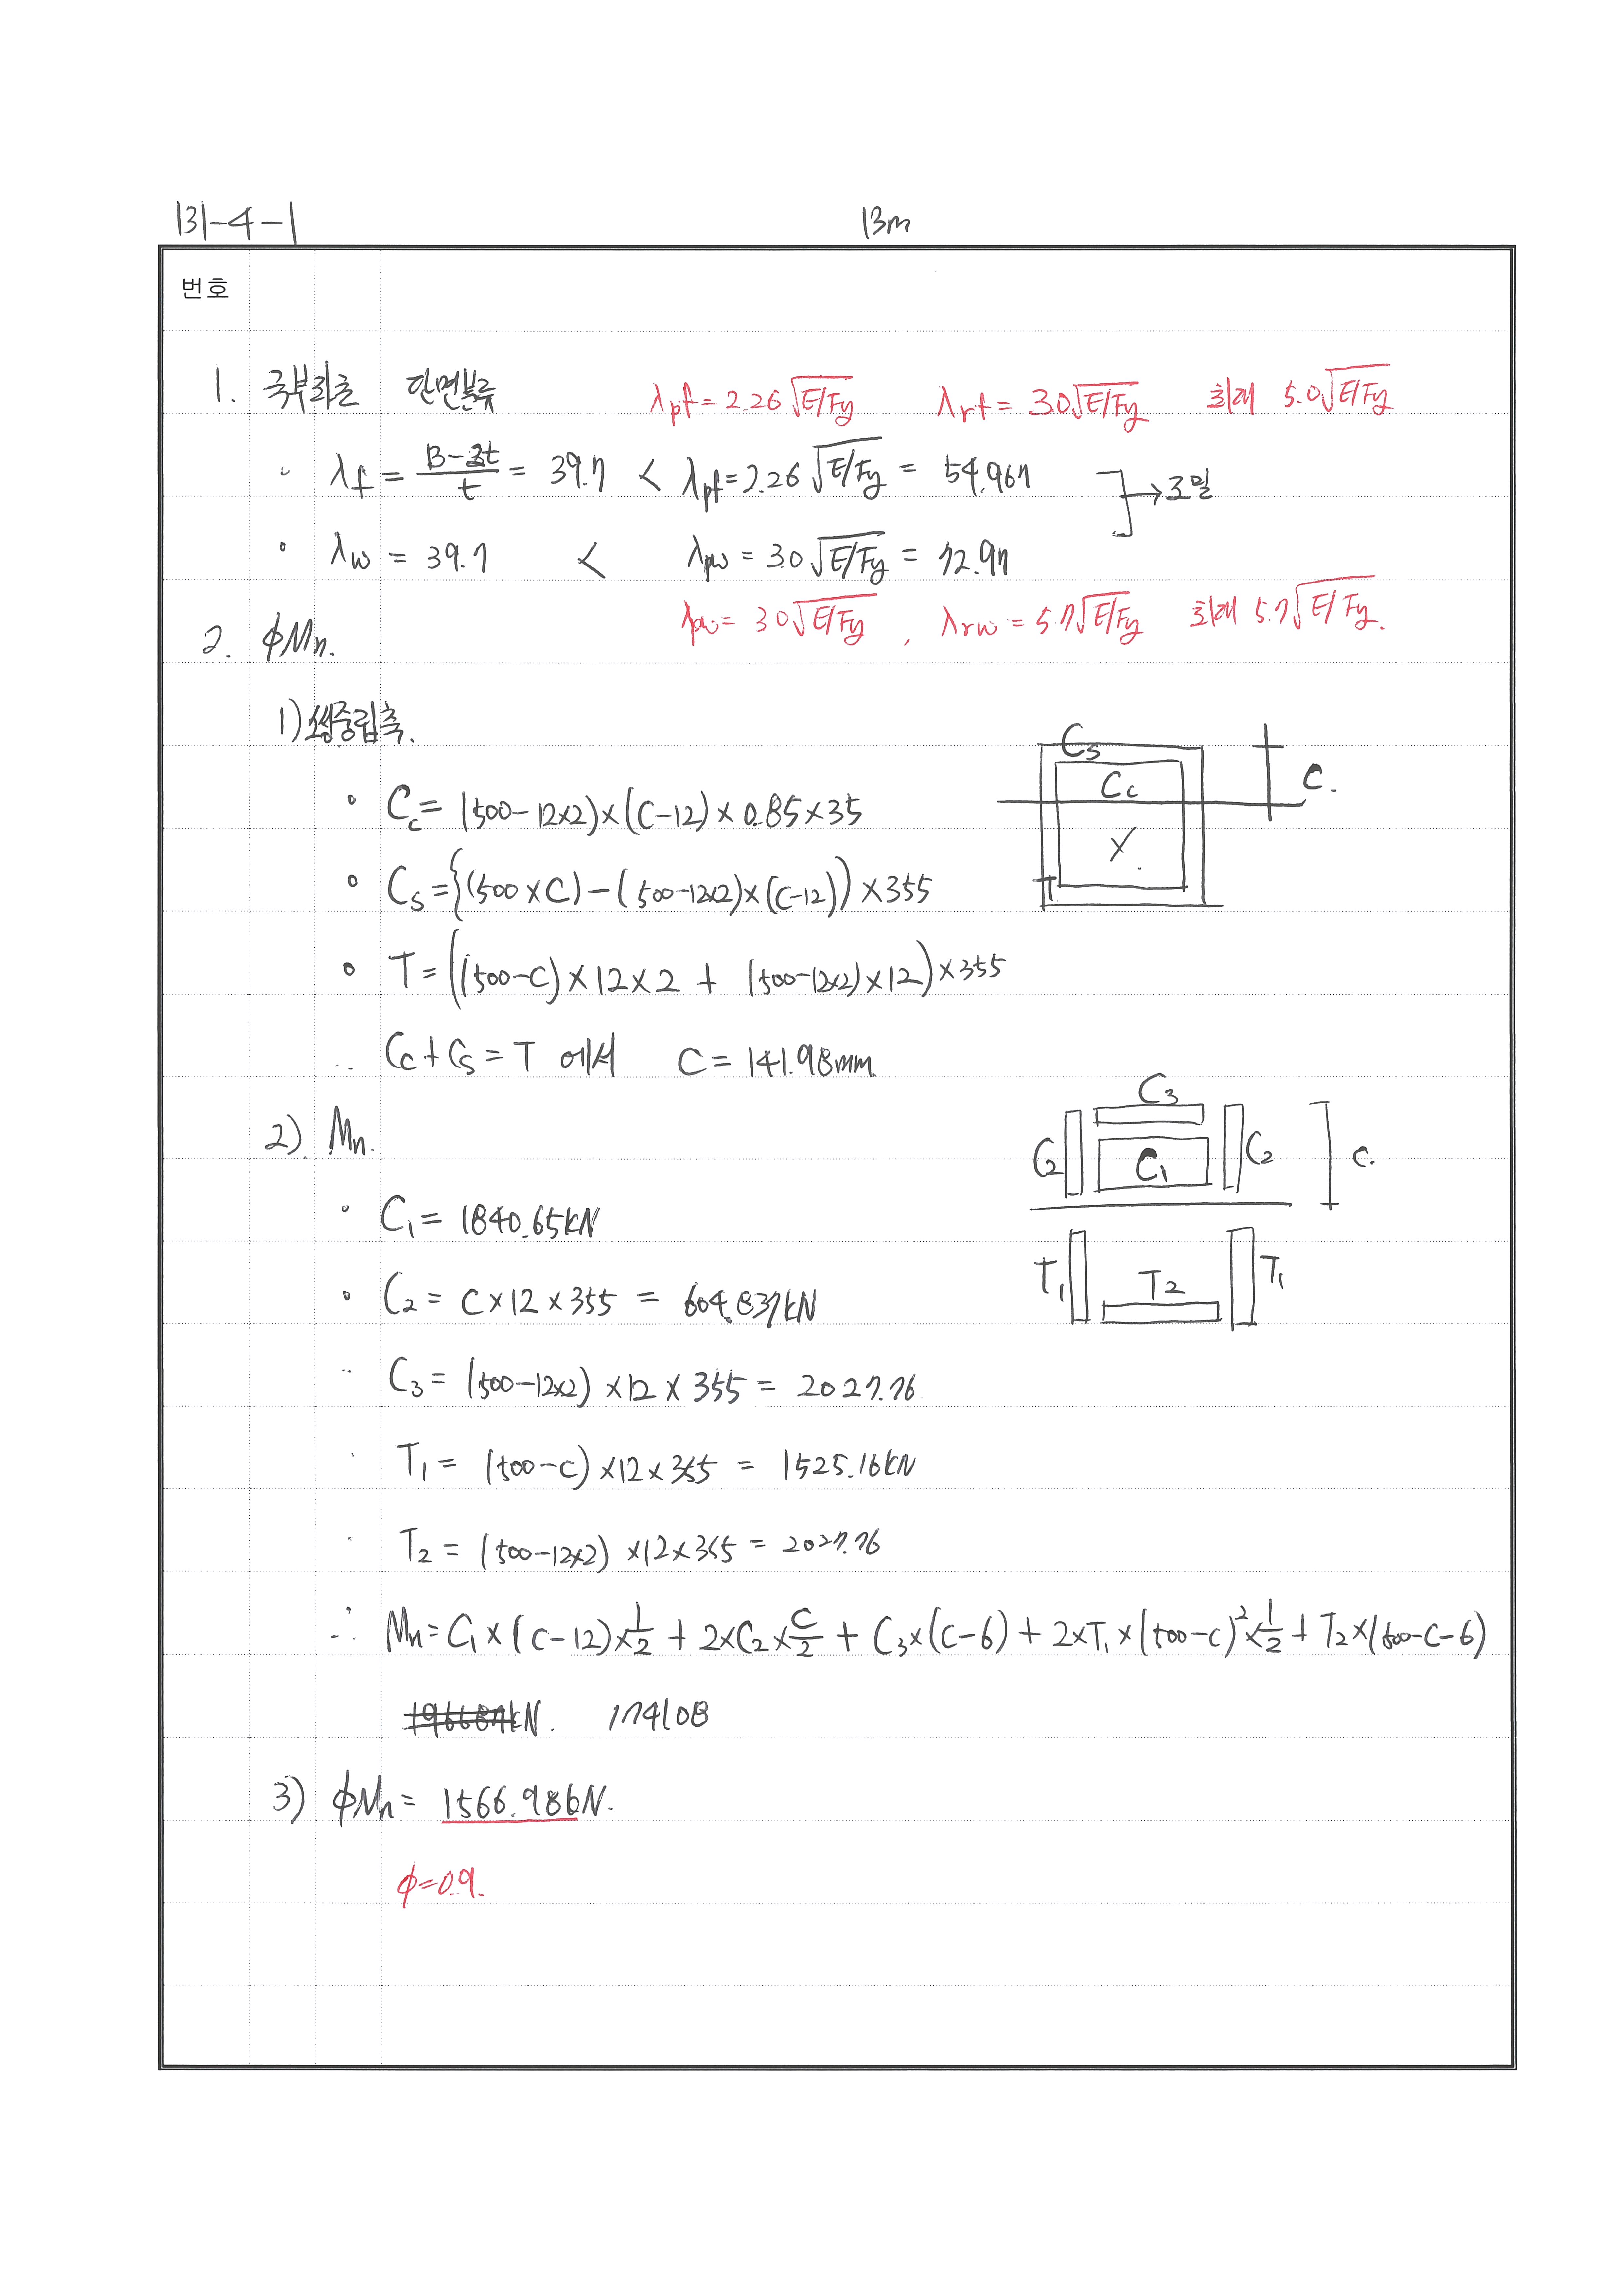 131-4-1 13m
번호
1. 국부좌굴 단면분류 λpf = 2.26√E/Fy λrf = 3.0√E/Fy 최대 5.0√E/Fy
· λf = B-3t/t = 39.7 < λpf = 2.26√E/Fy = 54.967 → 조밀
· λw = 39.7 < λpw = 3.0√E/Fy = 72.97
λpw = 3.0√E/Fy , λrw = 5.7√E/Fy 최대 5.7√E/Fy.
2. φMn.
1) 소성중립축.
· Cc = (500-12×2)×(C-12)×0.85×35
Cs
Cc
C.
X
T
· Cs = {(500×C)-(500-12×2)×(C-12)}×355
· T = ((500-C)×12×2 + (500-12×2)×12)×355
∴ Cc+Cs = T 에서 C = 141.98mm
2). Mn.
C3
C2 C1 C2 C.
T1 T2 T1
· C1 = 1840.65kN
· C2 = C×12×355 = 604.837kN
· C3 = (500-12×2)×12×355 = 2027.76
· T1 = (500-C)×12×355 = 1525.16kN
· T2 = (500-12×2)×12×355 = 2027.76
∴ Mn = C1×(C-12)×1/2 + 2×C2×C/2 + C3×(C-6) + 2×T1×(500-C)²×1/2 + T2×(500-C-6)
kN. 174108
3) φMn = 1566.986N.
φ=0.9.